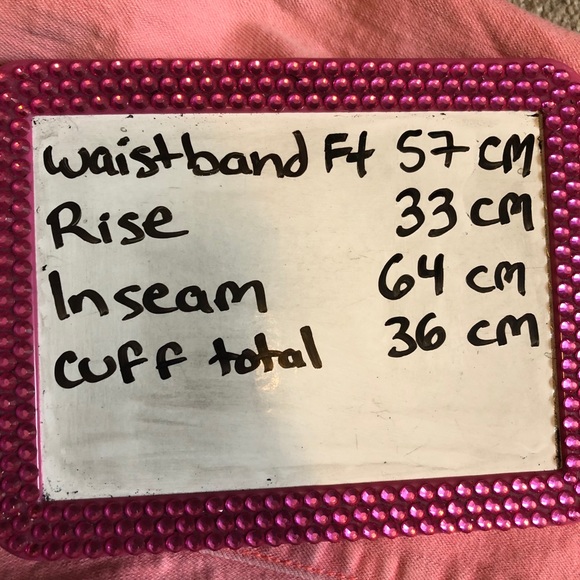 waistband Ft 57 cm
Rise 33 cm
Inseam 64 cm
cuff total 36 cm